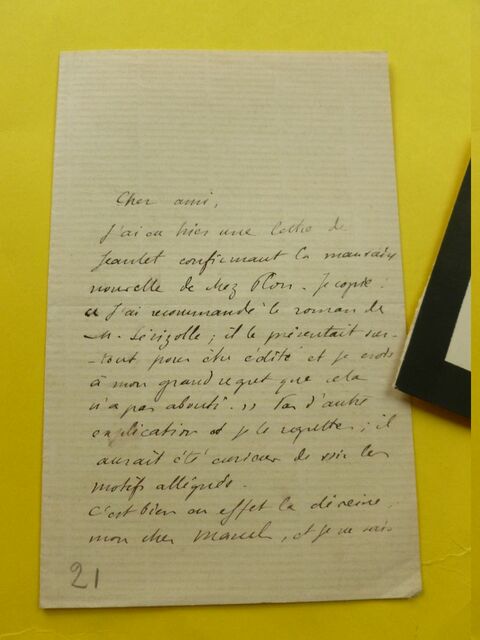 Cher ami,
J'ai eu hier une lettre de
Jeantet confirmant la mauvaise
nouvelle de chez Plon. Je copie :
« J'ai recommandé le roman de
M. Sérizolle ; il le présentait sur-
-tout pour être édité et je crois
à mon grand regret que cela
n'a pas abouti. » Pas d'autre
explication et je le regrette ; il
aurait été curieux de voir les
motifs allégués.
C'est bien en effet la déveine,
mon cher Marcel, et je ne suis
21